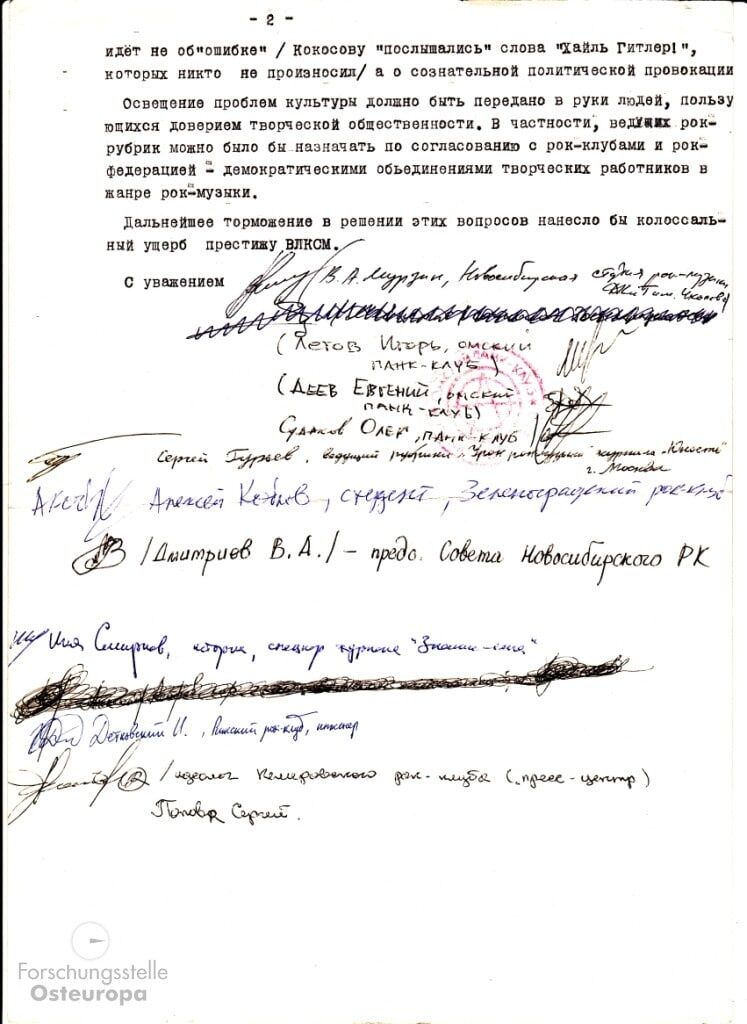 - 2 -
идёт не об"ошибке" / Кокосову "послышались" слова "Хайль Гитлер!",
которых никто не произносил/ а о сознательной политической провокации
Освещение проблем культуры должно быть передано в руки людей, пользу
ющихся доверием творческой общественности. В частности, ведущих рок-
рубрик можно было бы назначать по согласованию с рок-клубами и рок-
федерацией - демократическими обьединениями творческих работников в
жанре рок-музыки.
Дальнейшее торможение в решении этих вопросов нанесло бы колоссаль-
ный ущерб престижу ВЛКСМ.
С уважением
В.А. Мурзин, Новосибирская студия рок-музыки
им. Чкалова
(Летов Игорь, омский
панк-клуб)
(Деев Евгений, омский
панк-клуб)
Судаков Олег, панк-клуб
Сергей Гурьев, ведущий рубрики "Урок рок-музыки" журнала "Юность"
г. Москва
Алексей Коблов, студент, Зеленоградский рок-клуб
/Дмитриев В.А./ - пред. Совета Новосибирского РК
Илья Смирнов, историк, спецкор журнала "Знание-сила"
И., Рижский рок-клуб, инженер
/идеолог Кемеровского рок-клуба (пресс-центр)
Сергей.
Forschungsstelle
Osteuropa